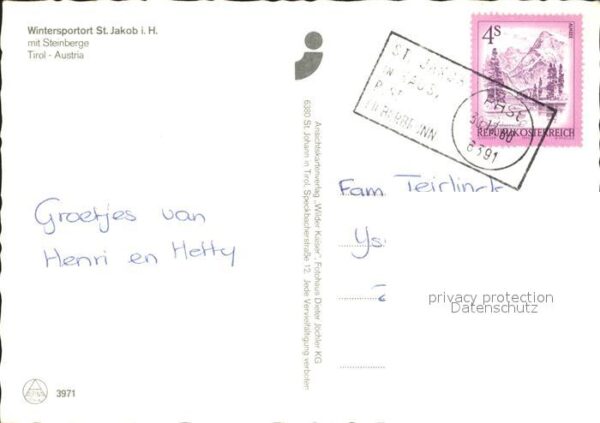 Wintersportort St. Jakob i. H.
mit Steinberge
Tirol - Austria
4S
REPUBLIK ÖSTERREICH
ST. JAKOB
IN HAUS,
POST
FIEBERBRUNN
6391
Groetjes van
Henri en Hetty
Ansichtskartenverlag „Wilder Kaiser", Fotohaus Dieter Jöchler KG
6380 St. Johann in Tirol, Speckbacherstraße 12. Jede Vervielfältigung verboten
Fam. Teirlinck
Ys
privacy protection
Datenschutz
3971